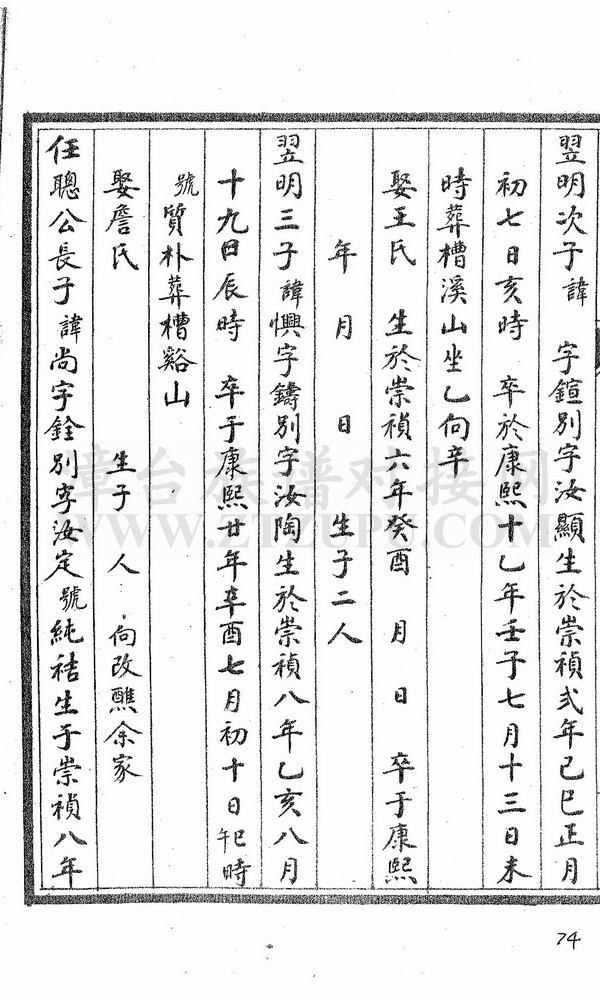 翌明次子諱 字鍹別字汝顯生於崇禎弍年己巳正月
初七日亥時 卒於康熙十乙年壬子七月十三日未
時葬槽溪山坐乙向辛
娶王氏 生於崇禎六年癸酉 月 日 卒于康熙
年 月 日 生子二人
翌明三子諱懙字鑄別字汝陶生於崇禎八年乙亥八月
十九日辰時 卒于康熙廿年辛酉七月初十日時
號質朴葬槽谿山
娶詹氏 生子 人 向改醮余家
任聰公長子諱尚字銓別字汝定號純祮生于崇禎八年
章台族譜对接网
WWW.ZTZUPU.COM
74